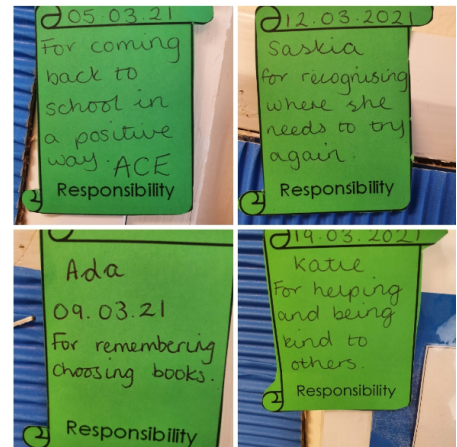 05.03.21
For coming
back to
school in
a positive
way. ACE
Responsibility
12.03.2021
Saskia
for recognising
where she
needs to try
again.
Responsibility
Ada
09.03.21
For remembering
Choosing books.
Responsibility
19.03.2021
Katie
For helping
and being
kind to
others.
Responsibility